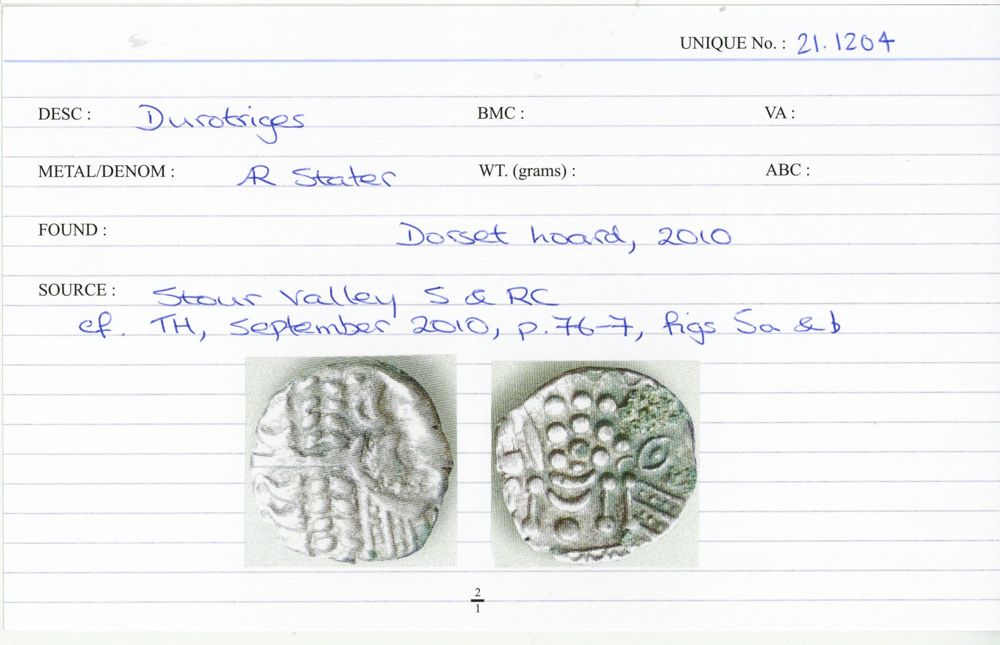 UNIQUE No. : 21.1204
DESC : Durotriges BMC : VA :
METAL/DENOM : AR Stater WT. (grams) : ABC :
FOUND : Dorset hoard, 2010
SOURCE : Stour Valley S & RC
cf. TH, September 2010, p.76-7, figs 5a & b
2
1